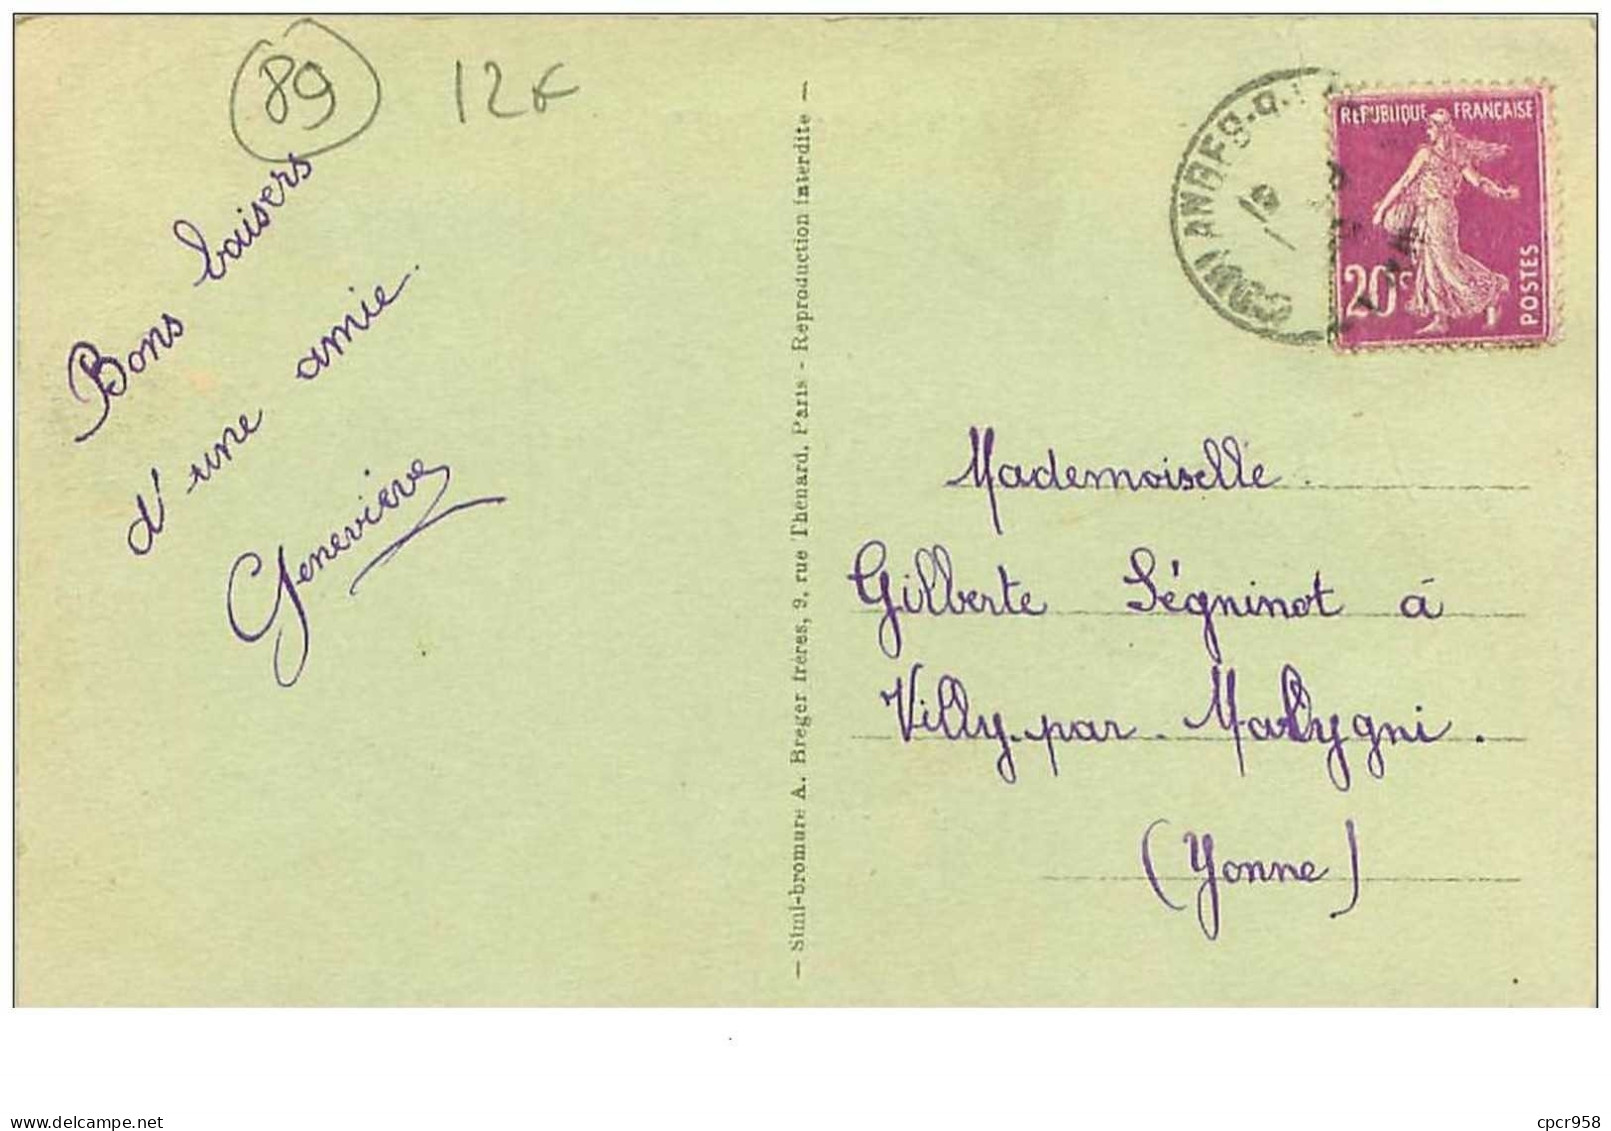 89
12F
Bons baisers
d'une amie.
Geneviève
— Simi-bromure A. Breger frères, 9, rue Thenard, Paris - Reproduction interdite —
REPUBLIQUE FRANÇAISE
20c
POSTES
COULANGES-S-
Mademoiselle
Gilberte Ségninot à
Villy par Malygni.
(Yonne)
cpcr958